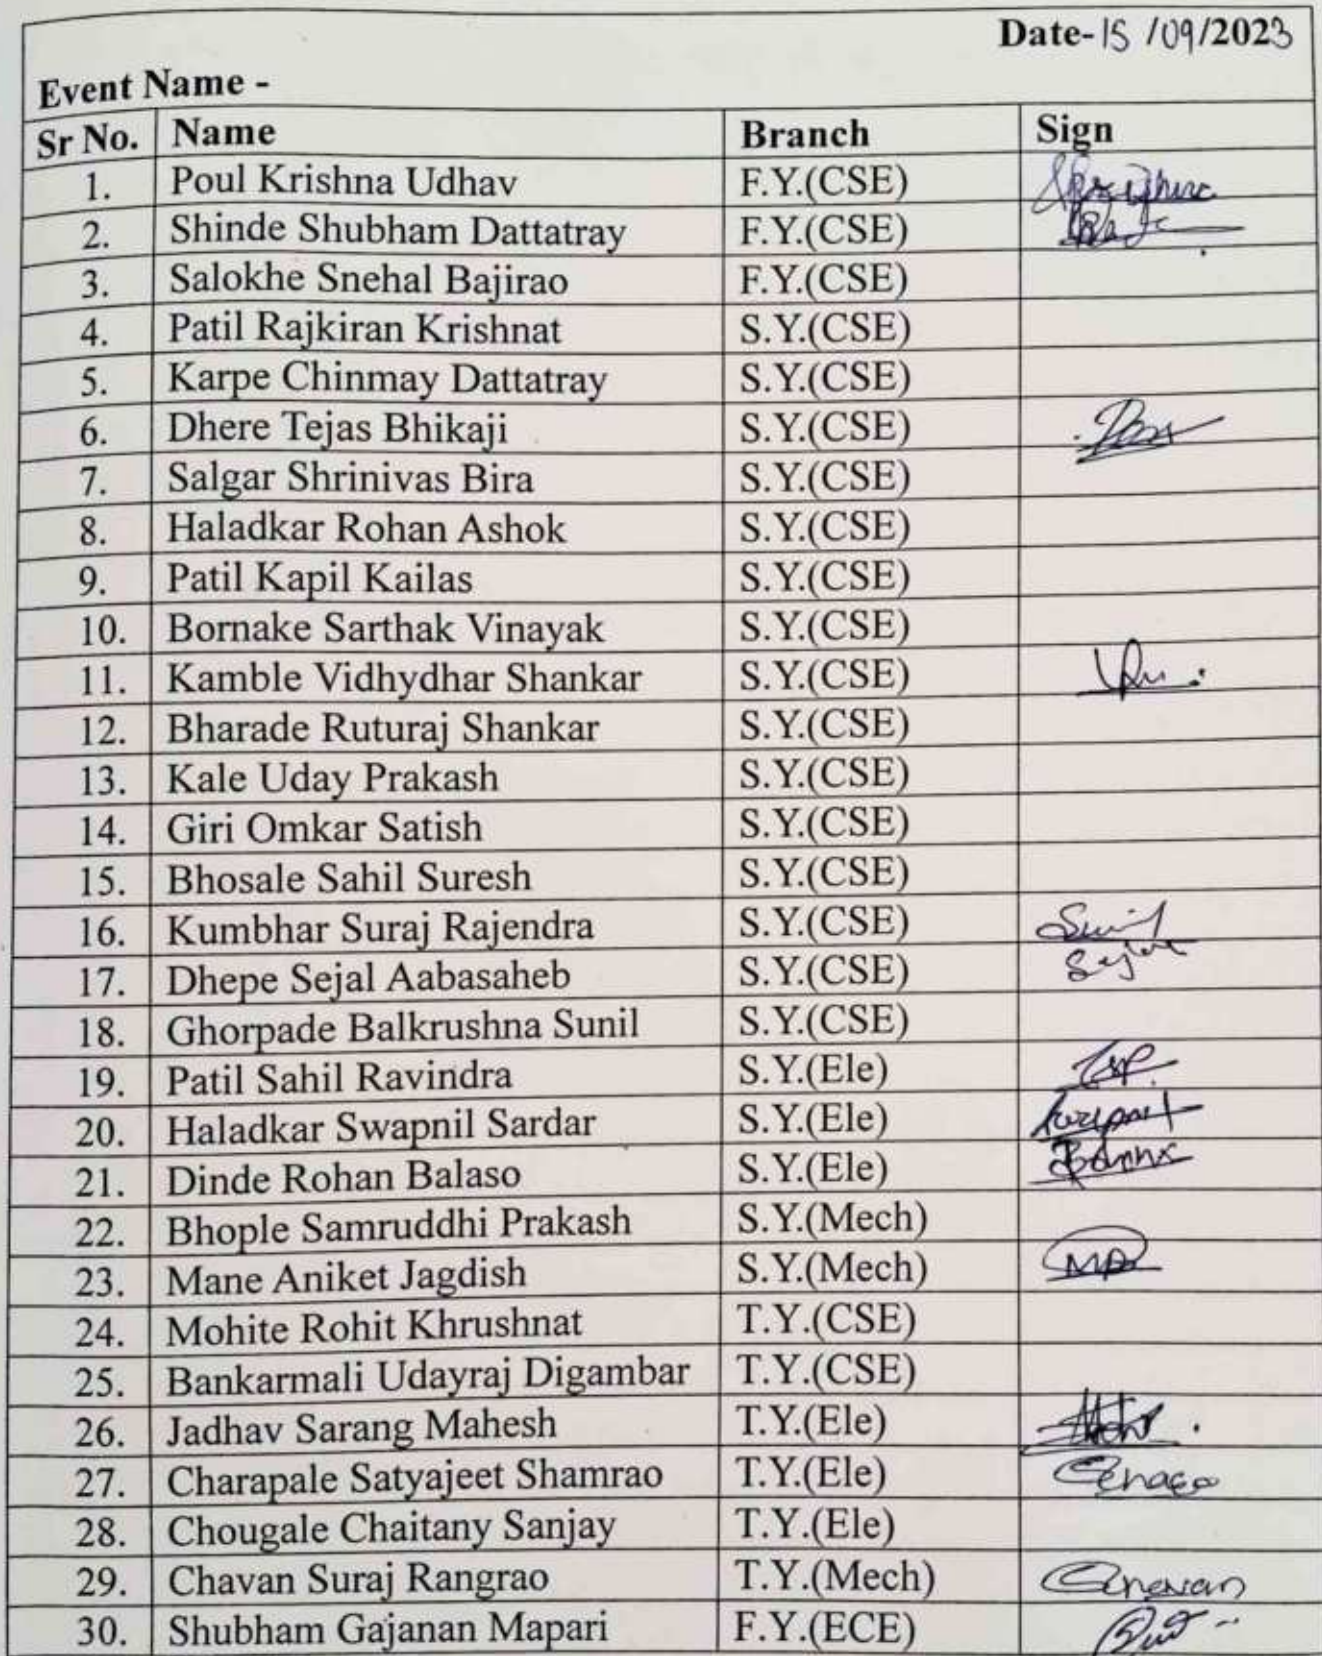 Date-15/09/2023
Event Name -
Sr No. Name Branch Sign
1. Poul Krishna Udhav F.Y.(CSE)
2. Shinde Shubham Dattatray F.Y.(CSE)
3. Salokhe Snehal Bajirao F.Y.(CSE)
4. Patil Rajkiran Krishnat S.Y.(CSE)
5. Karpe Chinmay Dattatray S.Y.(CSE)
6. Dhere Tejas Bhikaji S.Y.(CSE)
7. Salgar Shrinivas Bira S.Y.(CSE)
8. Haladkar Rohan Ashok S.Y.(CSE)
9. Patil Kapil Kailas S.Y.(CSE)
10. Bornake Sarthak Vinayak S.Y.(CSE)
11. Kamble Vidhydhar Shankar S.Y.(CSE)
12. Bharade Ruturaj Shankar S.Y.(CSE)
13. Kale Uday Prakash S.Y.(CSE)
14. Giri Omkar Satish S.Y.(CSE)
15. Bhosale Sahil Suresh S.Y.(CSE)
16. Kumbhar Suraj Rajendra S.Y.(CSE)
17. Dhepe Sejal Aabasaheb S.Y.(CSE) Sejal
18. Ghorpade Balkrushna Sunil S.Y.(CSE)
19. Patil Sahil Ravindra S.Y.(Ele)
20. Haladkar Swapnil Sardar S.Y.(Ele)
21. Dinde Rohan Balaso S.Y.(Ele)
22. Bhople Samruddhi Prakash S.Y.(Mech)
23. Mane Aniket Jagdish S.Y.(Mech)
24. Mohite Rohit Khrushnat T.Y.(CSE)
25. Bankarmali Udayraj Digambar T.Y.(CSE)
26. Jadhav Sarang Mahesh T.Y.(Ele)
27. Charapale Satyajeet Shamrao T.Y.(Ele)
28. Chougale Chaitany Sanjay T.Y.(Ele)
29. Chavan Suraj Rangrao T.Y.(Mech)
30. Shubham Gajanan Mapari F.Y.(ECE)